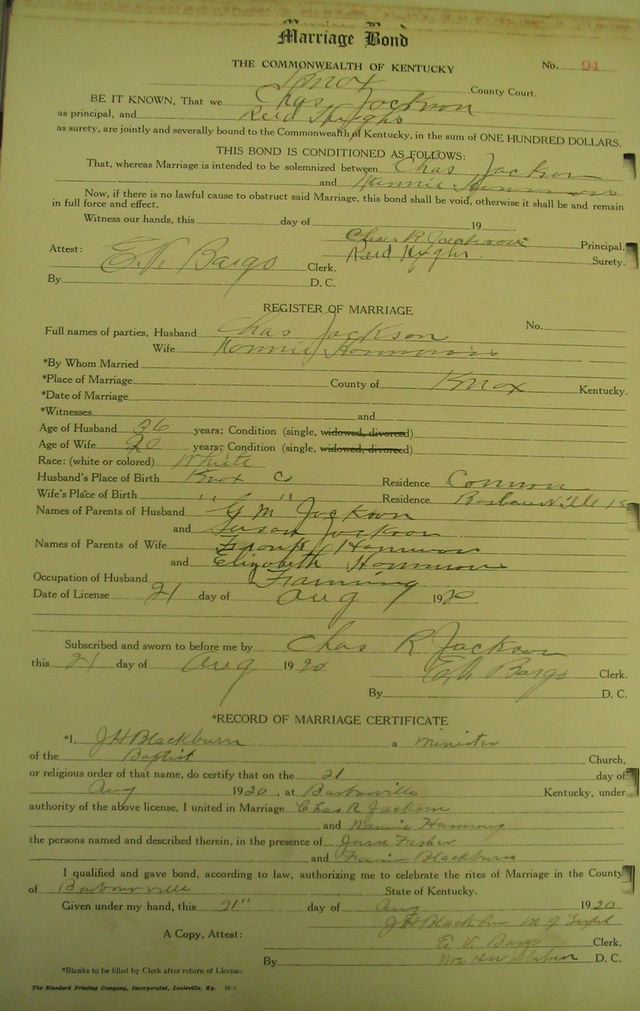 Marriage Bond
THE COMMONWEALTH OF KENTUCKY No. 94
Knox County Court.
BE IT KNOWN, That we Chas Jackson
as principal, and Reid
as surety, are jointly and severally bound to the Commonwealth of Kentucky, in the sum of ONE HUNDRED DOLLARS.
THIS BOND IS CONDITIONED AS FOLLOWS:
That, whereas Marriage is intended to be solemnized between Chas Jackson
and
Now, if there is no lawful cause to obstruct said Marriage, this bond shall be void, otherwise it shall be and remain
in full force and effect.
Witness our hands, this day of 19
Chas R Jackson Principal.
Attest: Reid Surety.
Bargo Clerk.
By D. C.
REGISTER OF MARRIAGE
Full names of parties, Husband Chas Jackson No.
Wife
*By Whom Married
*Place of Marriage County of Knox Kentucky.
*Date of Marriage
*Witnesses and
Age of Husband 36 years; Condition (single, widowed, divorced)
Age of Wife 20 years; Condition (single, widowed, divorced)
Race: (white or colored) White
Husband's Place of Birth Knox Co Residence
Wife's Place of Birth " " Residence Barbourville
Names of Parents of Husband G M Jackson
and Susan Jackson
Names of Parents of Wife Frank
and Elizabeth
Occupation of Husband Farming
Date of License 21 day of Aug 1920
Subscribed and sworn to before me by Chas R Jackson
this 21 day of Aug 1920 Bargo Clerk.
By D. C.
*RECORD OF MARRIAGE CERTIFICATE
*I, J H Blackburn a minister
of the Baptist Church,
or religious order of that name, do certify that on the 21 day of
Aug 1920, at Barbourville Kentucky, under
authority of the above license, I united in Marriage Chas R Jackson
and
the persons named and described therein, in the presence of Fisher
and Blackburn
I qualified and gave bond, according to law, authorizing me to celebrate the rites of Marriage in the County
of Barbourville State of Kentucky.
Given under my hand, this 21" day of Aug 1920
J H Blackburn
A Copy, Attest: Bargo Clerk.
By D. C.
*Blanks to be filled by Clerk after return of License.
The Standard Printing Company, Incorporated, Louisville, Ky. M-1